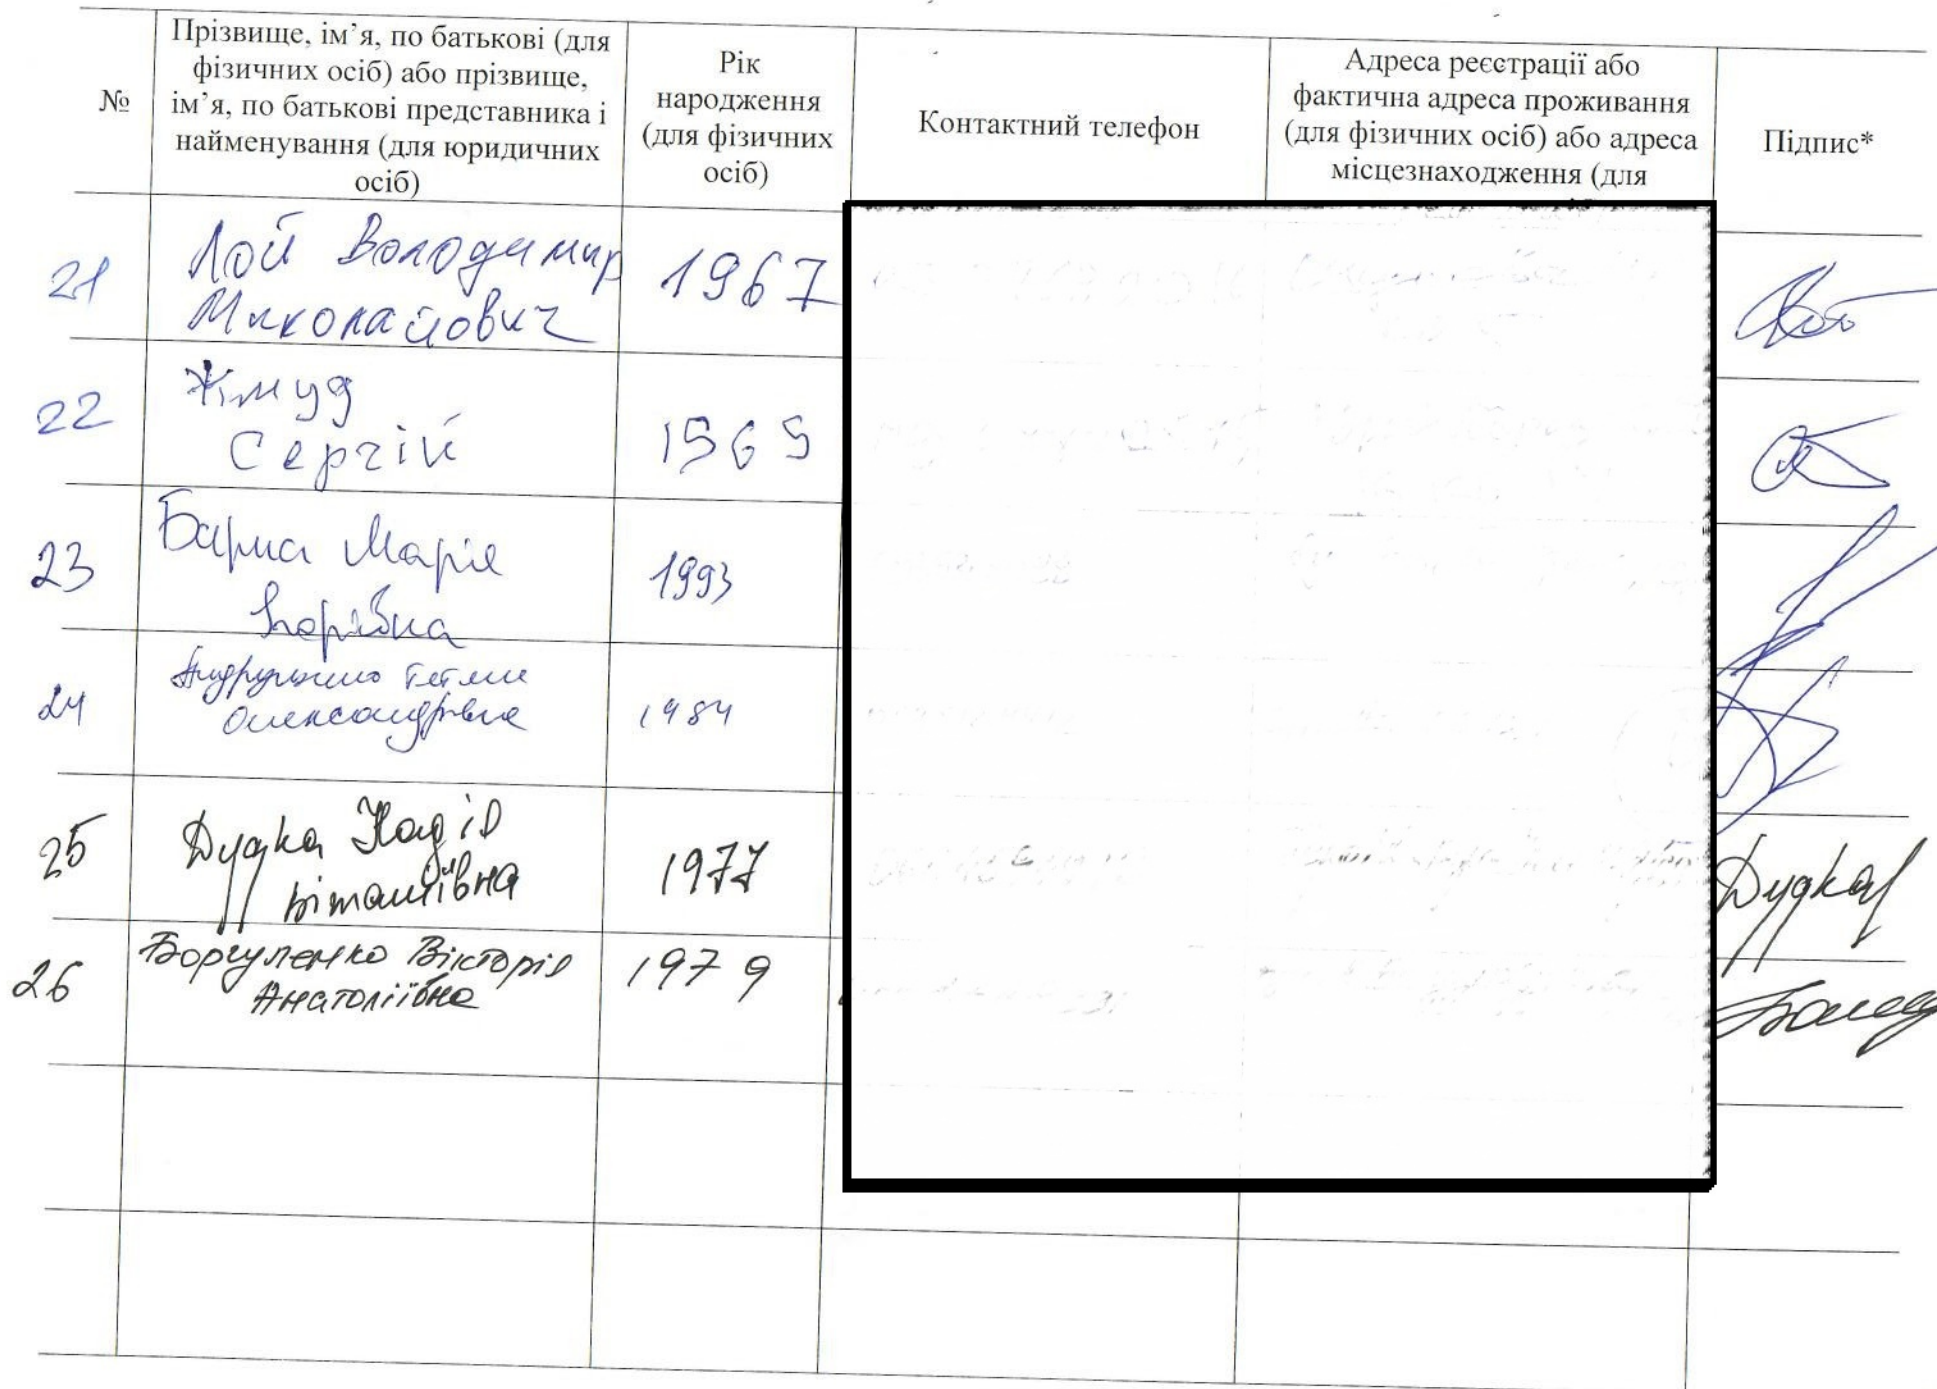 №
Прізвище, ім’я, по батькові (для
фізичних осіб) або прізвище,
ім’я, по батькові представника і
найменування (для юридичних
осіб)
Рік
народження
(для фізичних
осіб)
Контактний телефон
Адреса реєстрації або
фактична адреса проживання
(для фізичних осіб) або адреса
місцезнаходження (для
Підпис*
21
Лой Володимир
Миколайович
1967
22
Жмуд
Сергій
1969
23
Марія
Ігорівна
1993
24
Олександрівна
1984
25
Дудка Надія
Віталіївна
1977
Дудка
26
Вікторія
Анатоліївна
1979